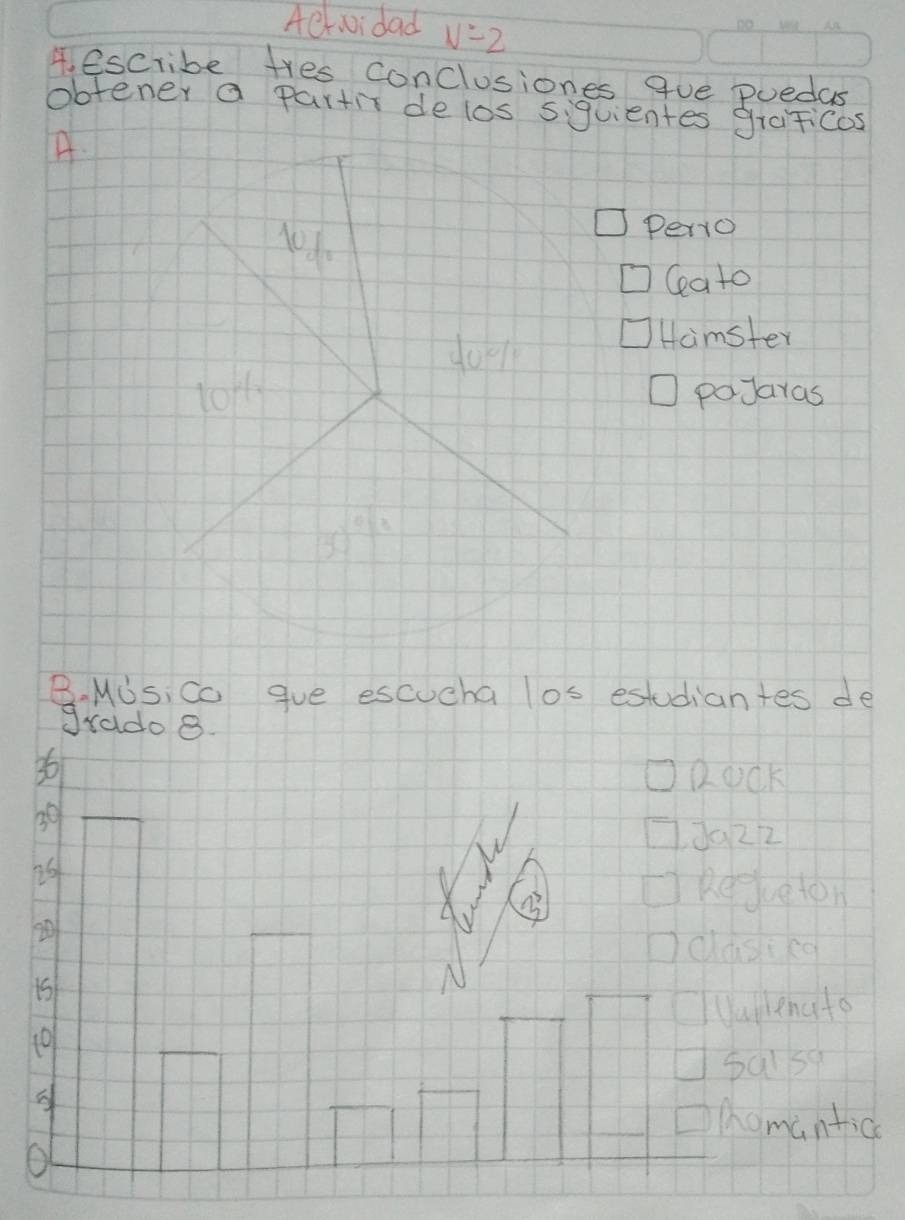 Actividad N=2
4. escribe tres conclusiones que puedas
obtener a partir de los siguientes graficos
A.
Perro
Gato
Hamster
paJaras
10%
40%
10%
30%
B. Música que escucha los estudiantes de
grado 8.
Rock
Jazz
Regueton
clasica
Vallenato
Salsa
Romantica
35
30
25
20
15
10
5
0